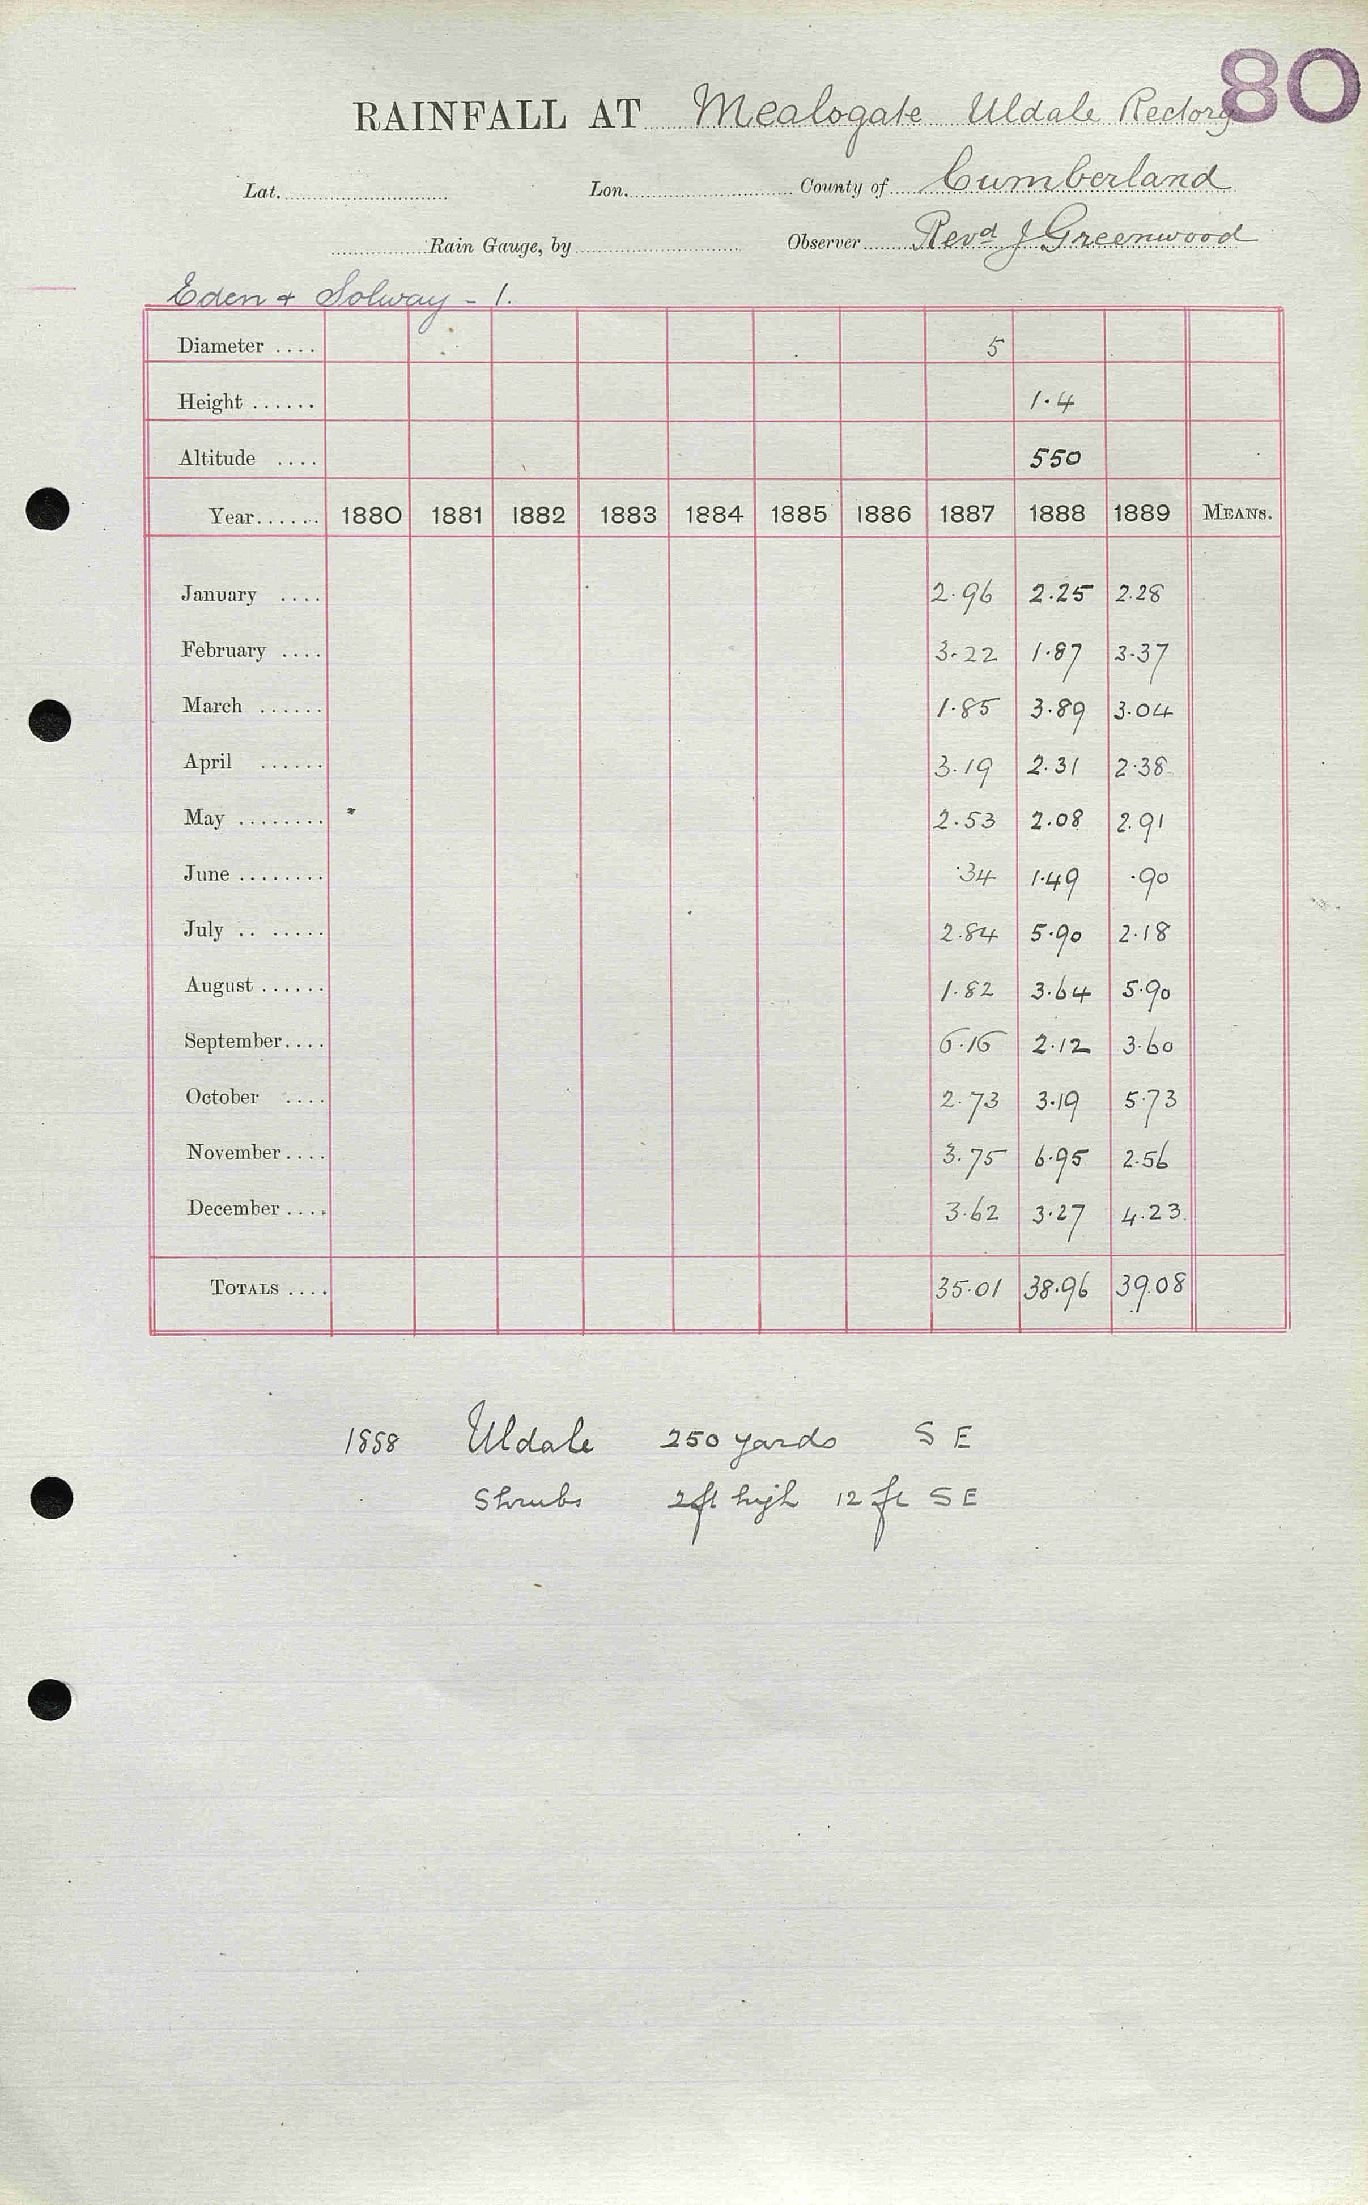 80
RAINFALL AT Mealsgate Uldale Rectory
Lat. Lon. County of Cumberland
Rain Gauge, by Observer Revd J Greenwood
Eden & Solway - 1.
Diameter .... 5
Height ...... 1.4
Altitude .... 550
Year...... 1880 1881 1882 1883 1884 1885 1886 1887 1888 1889 MEANS.
January .... 2.96 2.25 2.28
February .... 3.22 1.87 3.37
March ...... 1.85 3.89 3.04
April ...... 3.19 2.31 2.38
May ........ 2.53 2.08 2.91
June ........ .34 1.49 .90
July .. ..... 2.84 5.90 2.18
August ...... 1.82 3.64 5.90
September.... 6.16 2.12 3.60
October .... 2.73 3.19 5.73
November.... 3.75 6.95 2.56
December .... 3.62 3.27 4.23
TOTALS .... 35.01 38.96 39.08
1888 Uldale 250 yards S E
Shrubs 2ft high 12 ft S E